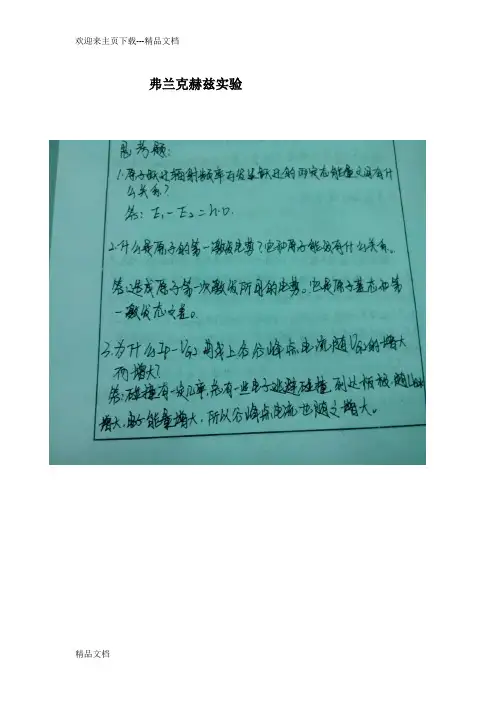 欢迎来主页下载---精品文档
弗兰克赫兹实验
思考题:
1.原子跃迁辐射频率与发生跃迁的两定态能量之间有什
么关系?
答: E₁-E₂=h·υ.
2.什么是原子的第一激发电势?它和原子能级有什么关系。
答:造成原子第一次激发所需的电势。它是原子基态和第
一激发态之差。
3.为什么Ip-VG2曲线上各谷峰点电流随VG2的增大
而增大?
答:碰撞有一定几率,总有一些电子逃避碰撞,到达板极.随UG2K
增大,电子能量增大,所以谷峰点电流也随之增大。
精品文档